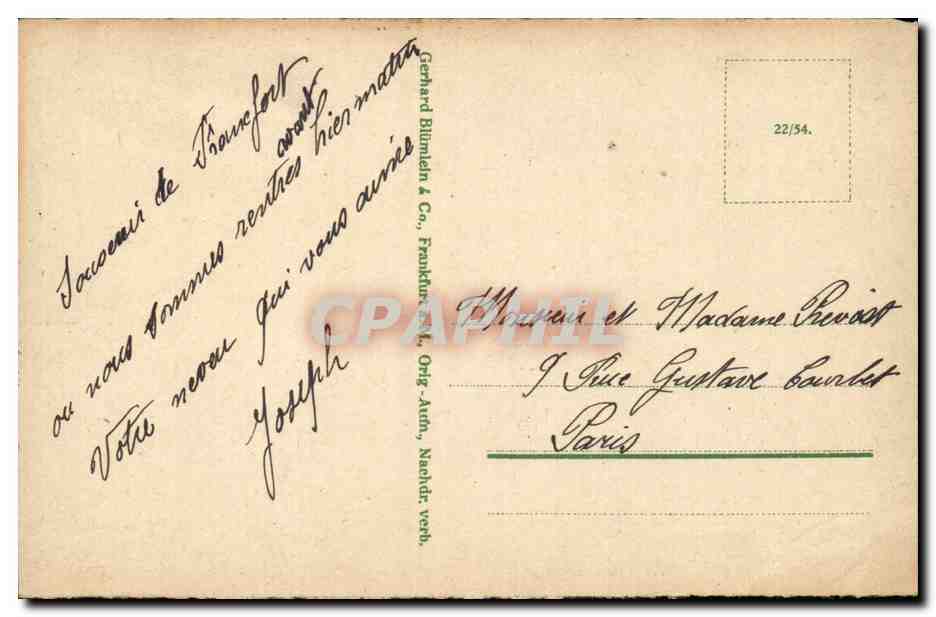 Souvenir de Francfort
ou nous sommes rentres avant hier matin
Votre neveu qui vous aime
Joseph
Gerhard Blümlein & Co., Frankfurt a. M., Orig.-Aufn., Nachdr. verb.
22/54.
CPAPHIL
Monsieur et Madame Prevost
9 Rue Gustave Courbet
Paris